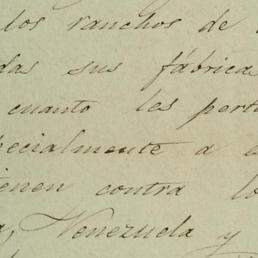 los ranchos de
das sus fábrica
cuanto les pert
pecialmente a
ienen contra lo
a, Venezuela y